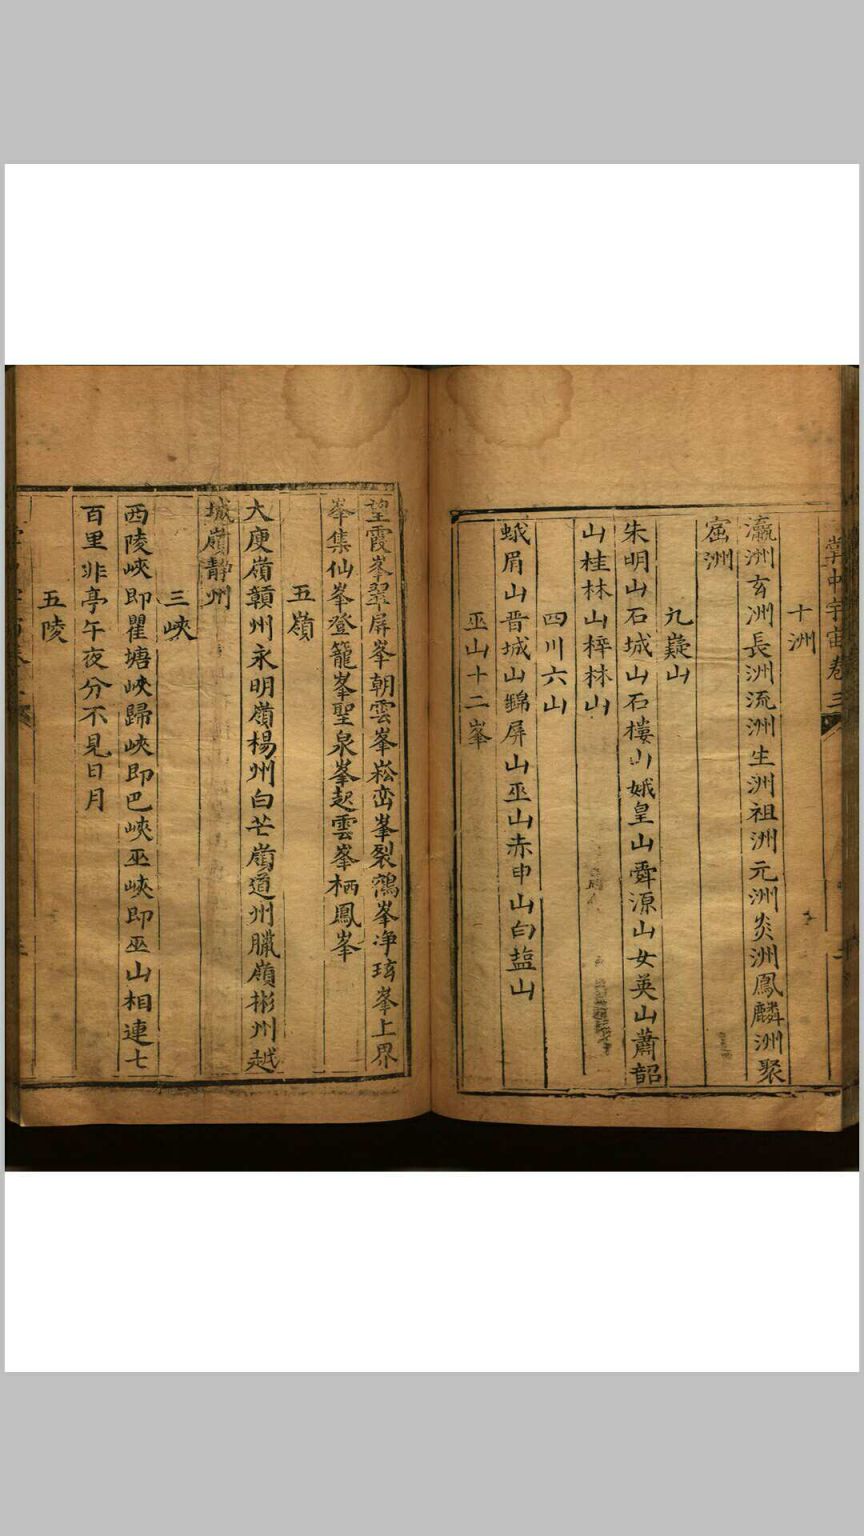 掌中宇宙卷三
十洲
瀛洲玄洲長洲流洲生洲祖洲元洲炎洲鳳麟洲聚
窟洲
九嶷山
朱明山石城山石樓山娥皇山舜源山女英山蕭韶
山桂林山梓林山
四川六山
蛾眉山晋城山錦屏山巫山赤申山白塩山
巫山十二峯
望霞峯翠屏峯朝雲峯崧峦峯裂鶴峯净琦峯上界
峯集仙峯登籠峯聖泉峯起雲峯栖鳳峯
五嶺
大庾嶺贛州永明嶺楊州白芒嶺道州臘嶺彬州越
城嶺静州
三峽
西陵峽即瞿塘峽歸峽即巴峽巫峽即巫山相連七
百里非亭午夜分不見日月
五陵